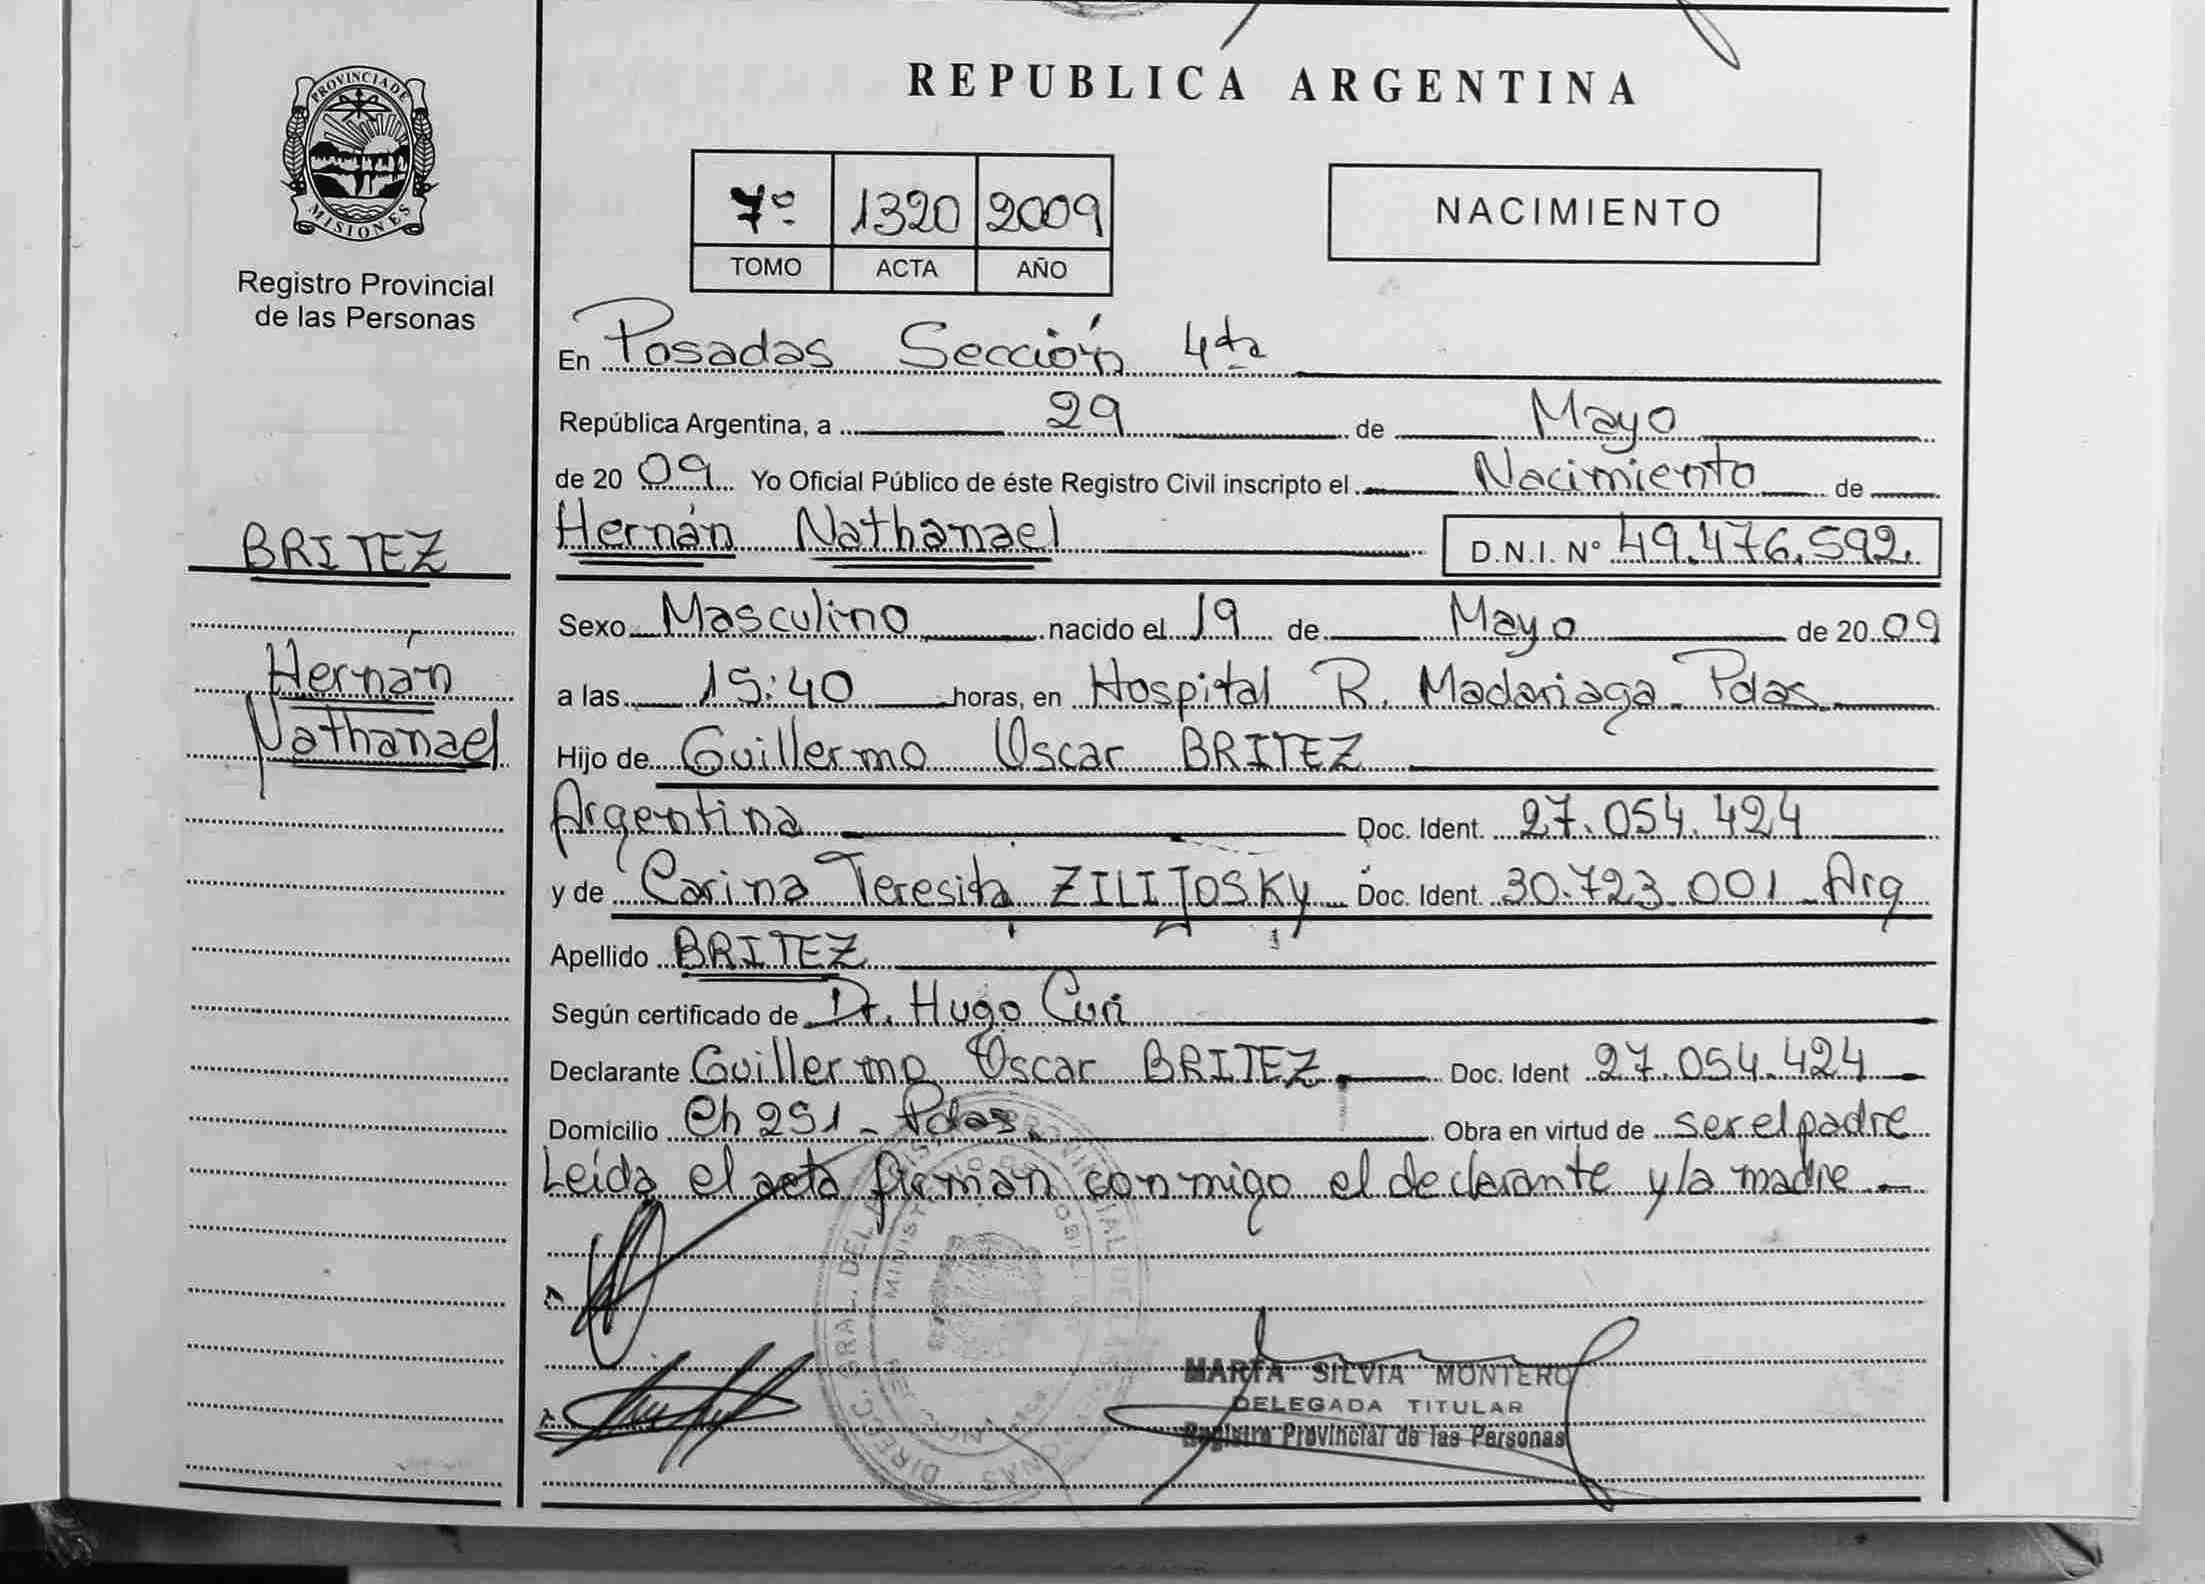 PROVINCIA DE
MISIONES
Registro Provincial
de las Personas
BRITEZ
Hernán
Nathanael
REPUBLICA ARGENTINA
7º 1320 2009
TOMO ACTA AÑO
NACIMIENTO
En Posadas Sección 4ta
República Argentina, a 29 de Mayo
de 20 09 Yo Oficial Público de éste Registro Civil inscripto el Nacimiento de
Hernán Nathanael D.N.I. Nº 49.476.592.
Sexo Masculino nacido el 19 de Mayo de 20 09
a las 15:40 horas, en Hospital R. Madariaga - Pdas
Hijo de Guillermo Oscar BRITEZ
Argentina Doc. Ident. 27.054.424
y de Carina Teresita ZILIJOSKY Doc. Ident 30.723.001 - Arg
Apellido BRITEZ
Según certificado de Dr. Hugo Curi
Declarante Guillermo Oscar BRITEZ. Doc. Ident 27.054.424
Domicilio Ch 251 - Pdas. Obra en virtud de ser el padre
Leída el acta firman conmigo el declarante y la madre -
MARTA SILVIA MONTERO
DELEGADA TITULAR
Registro Provincial de las Personas